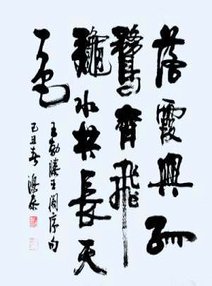 落霞與孤
鶩齊飛
龝水共長天
一色
王勃滕王閣序句
己丑春